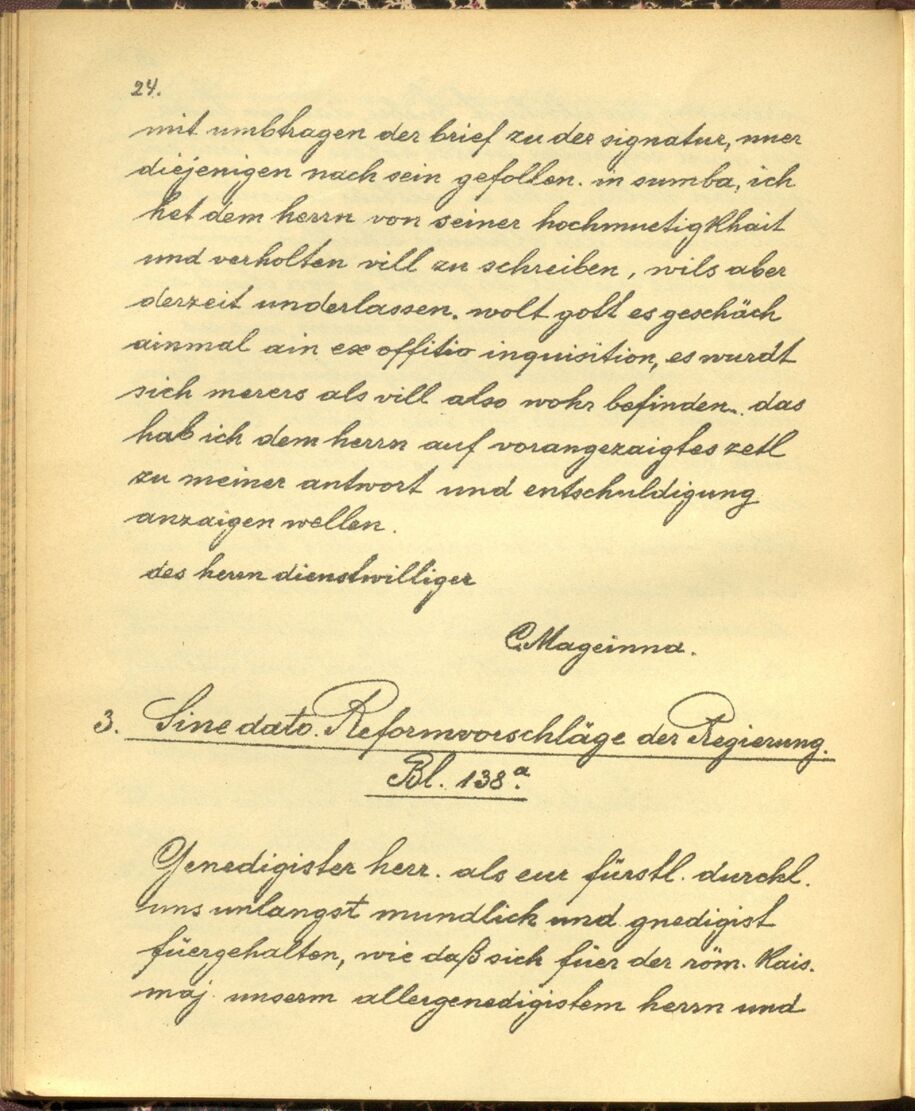 24.
mit umbtragen der brief zu der signatur, nuer
diejenigen nach sein gefollen. in sumba, ich
het dem herrn von seiner hochmuetigkhait
und verholten vill zu schreiben, wils aber
derzeit underlassen. wolt gott es geschäch
ainmal ain ex offitio inquisition, es wurdt
sich merers als vill also wohr befinden. das
hab ich dem herrn auf vorangezaigtes zetl
zu meiner antwort und entschuldigung
anzaigen wellen.
des herrn dienstwilliger
C. Mageinna.
3. Sine dato. Reformvorschläge der Regierung.
Bl. 138a.
Genedigister herr. als eur fürstl. durchl.
uns unlangst mundlich und gnedigist
füergehalten, wie daß sich füer der röm. Kais.
maj. unserm allergenedigistem herrn und